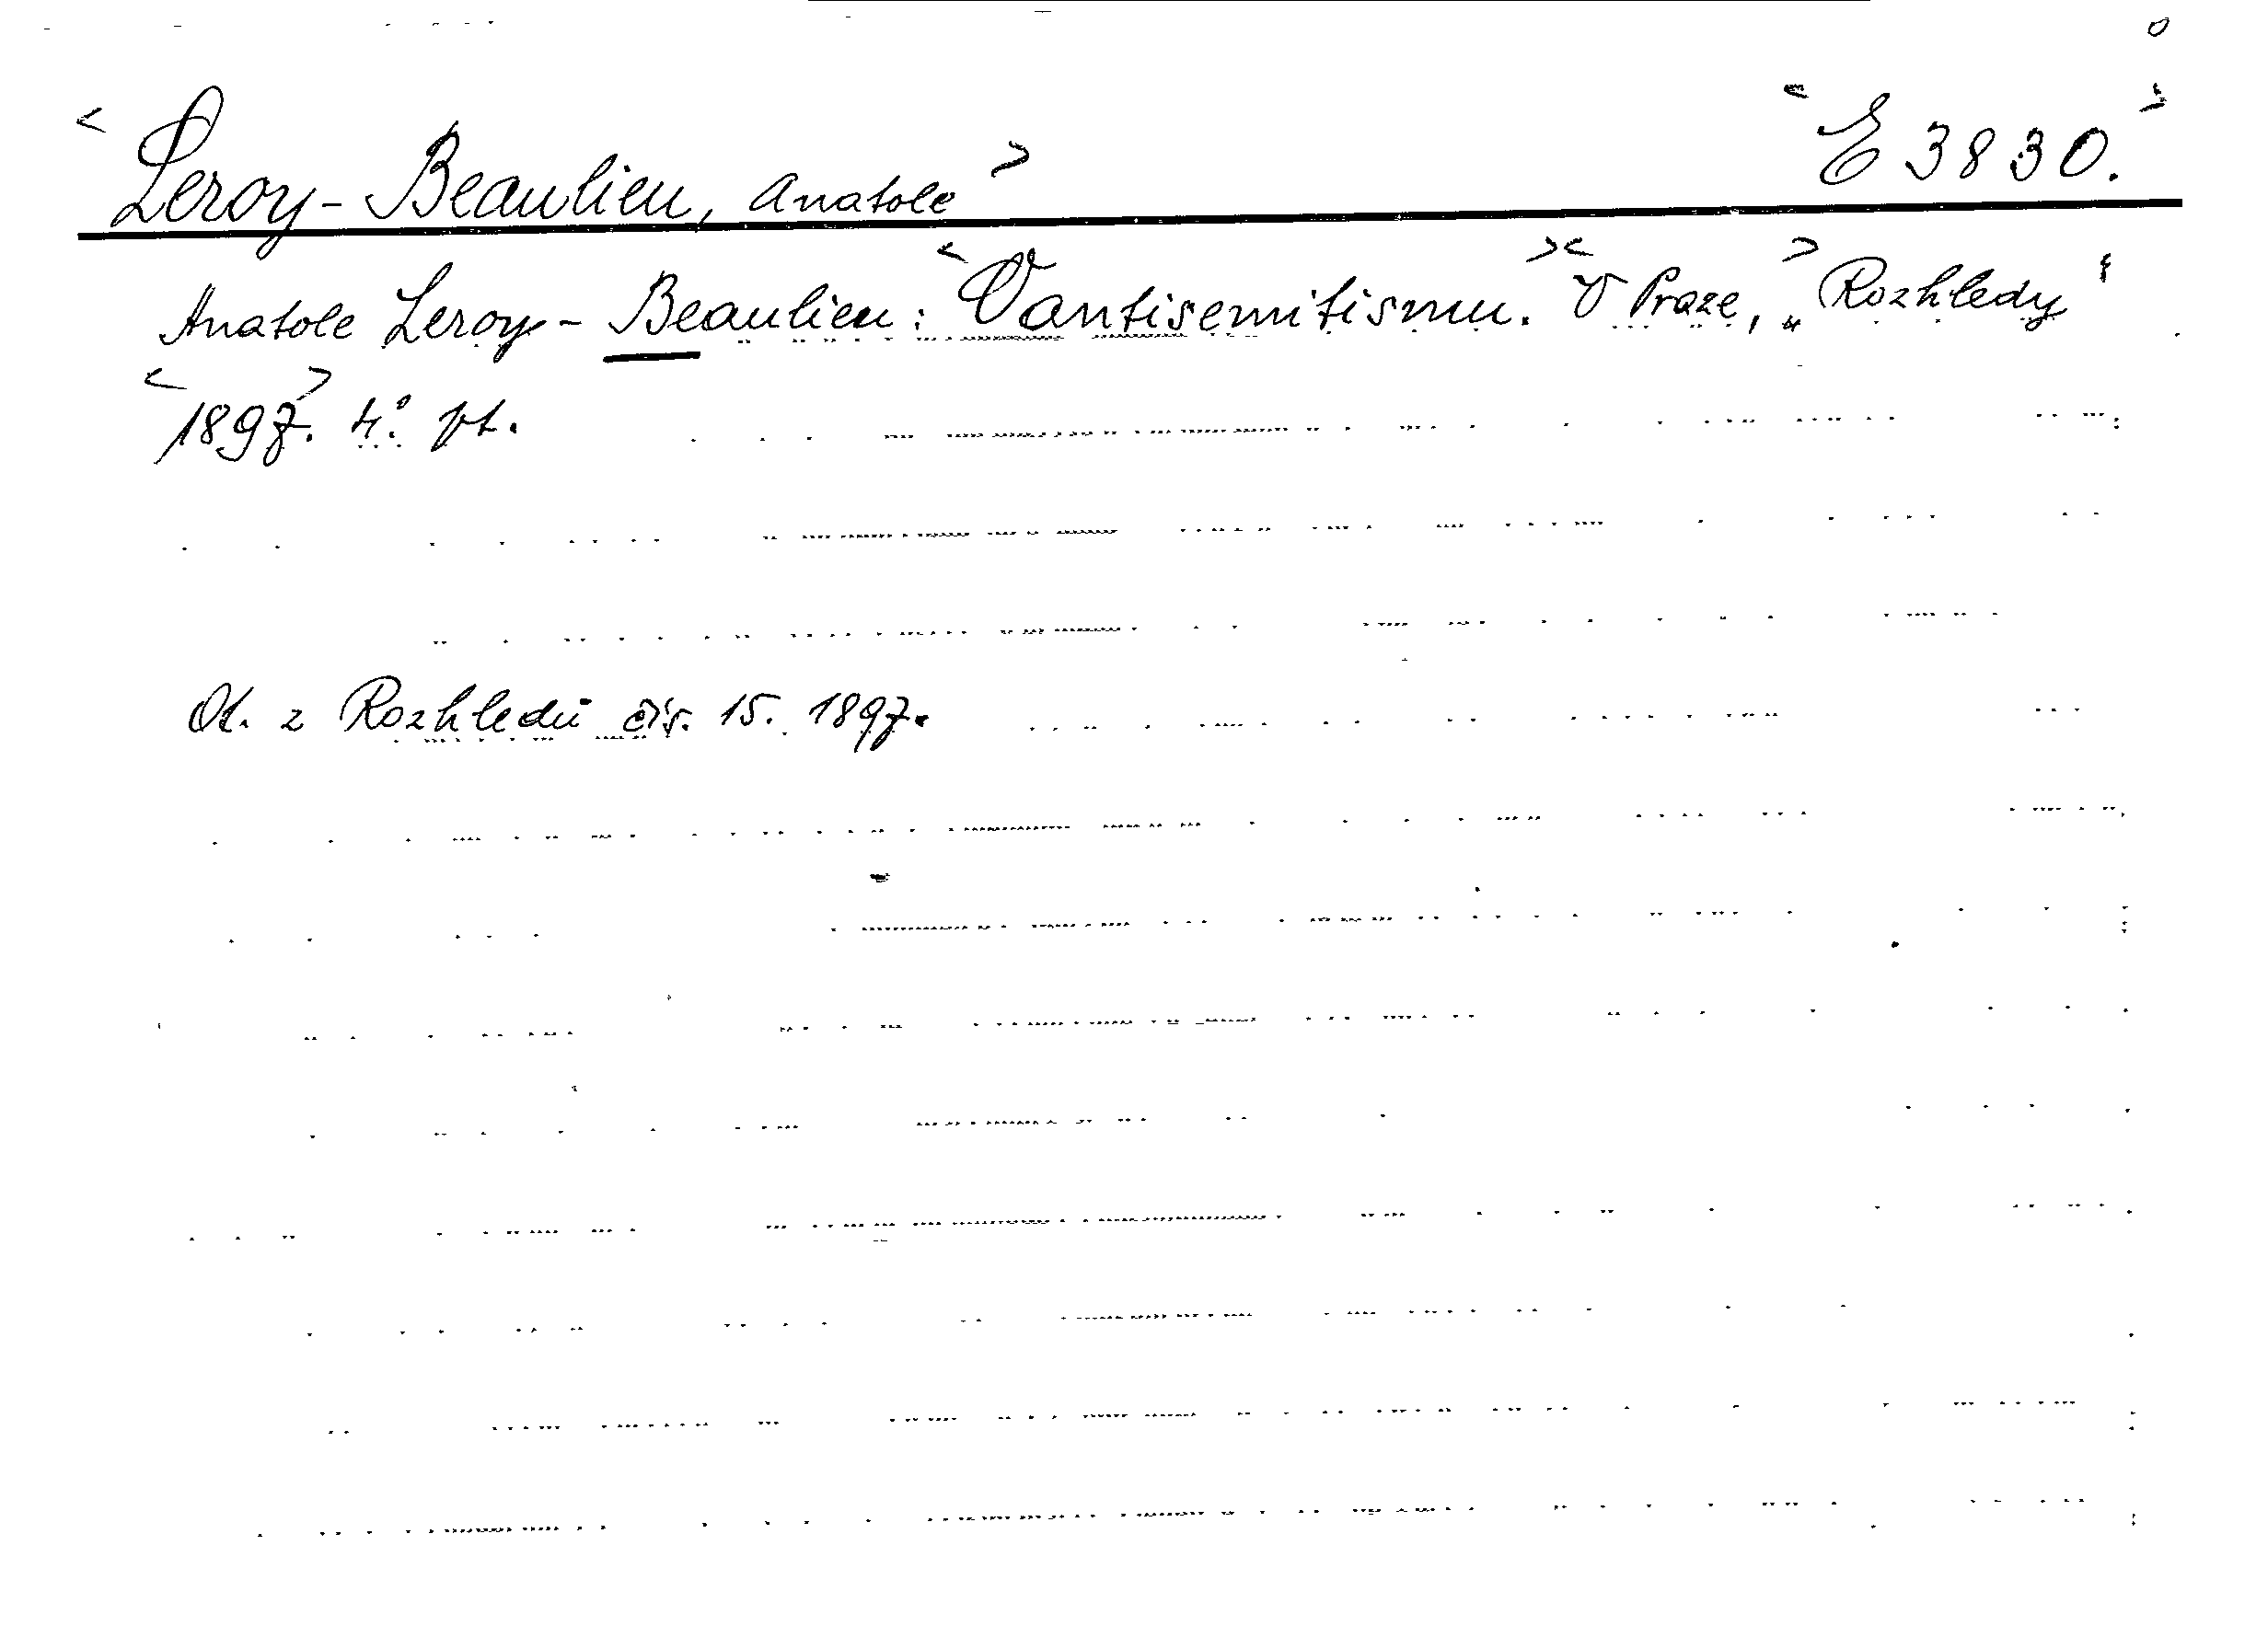 <Leroy-Beaulieu, Anatole> <E 3830.>
Anatole Leroy-Beaulieu: <O antisemitismu.> <V Praze,> „Rozhledy“
<1897>. 4.° pt.
Ot. z Rozhledů čís. 15. 1897.